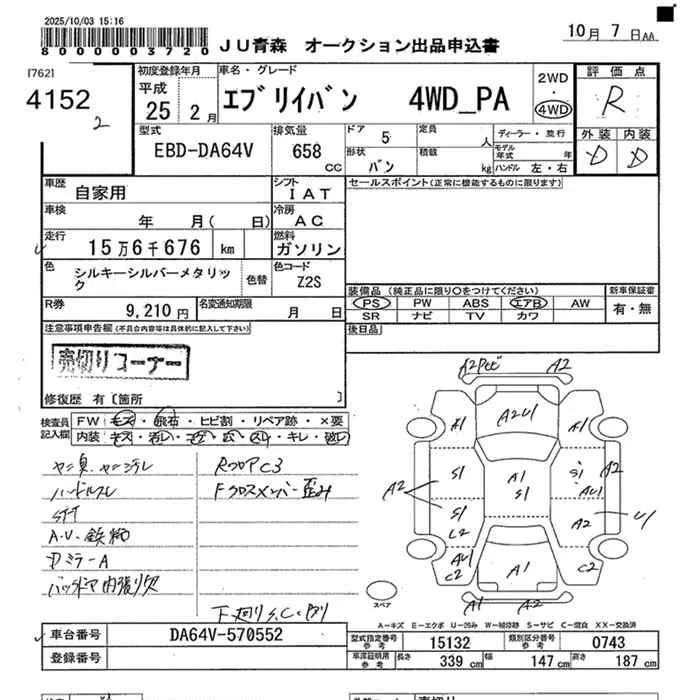 2025/10/03 15:16
8000003720
JU青森 オークション出品申込書
10月 7日AA
[762]
4152
2
初度登録年月
平成
25 2月
車名・グレード
エブリイバン 4WD_PA
2WD
・
4WD
評価点
R
外装 内装
D D
型式
EBD-DA64V
排気量
658 CC
ドア 5
形状 バン
定員 人
積載 kg
ディーラー・並行
モデル年式 年
ハンドル 左・右
車歴 自家用
シフト IAT
セールスポイント(正常に機能するものに限ります)
車検 年 月( 日)
冷房 AC
走行 15万6千676 km
燃料 ガソリン
色 シルキーシルバーメタリック
色替
色コード Z2S
装備品 (純正品に限り○をつけてください)
新車保証書
PS PW ABS エアB AW
SR ナビ TV カワ
有・無
R券 9,210円
名変通知期限 月 日
後日品
注意事項申告欄(不具合内容等は具体的に記入して下さい)
売切りコーナー
修復歴 有〔箇所 〕
検査員記入欄
FW キズ・飛石・ヒビ割・リペア跡・×要
内装
キレ
ハンドルスレ
シミ
A.V.鉄柄
DミラーA
バックドア内張り欠
RフロアC3
Fクロスメンバー歪み
下廻りS.C
A2 A2
A1 A2U1 A1
S1 A1 S1 S1 A2
A2 AU1
S1 A2 U1
L2
AU1 C2 A1 C2
A1 A2
スペア
A-キズ E-エクボ U-凹み W-補修跡 S-サビ C-腐食 XX-交換済
車台番号 DA64V-570552
登録番号
型式指定番号 参考 15132
類別区分番号 参考 0743
車庫証明用 参考 長さ 339 cm 幅 147 cm 高さ 187 cm
検査
売切り